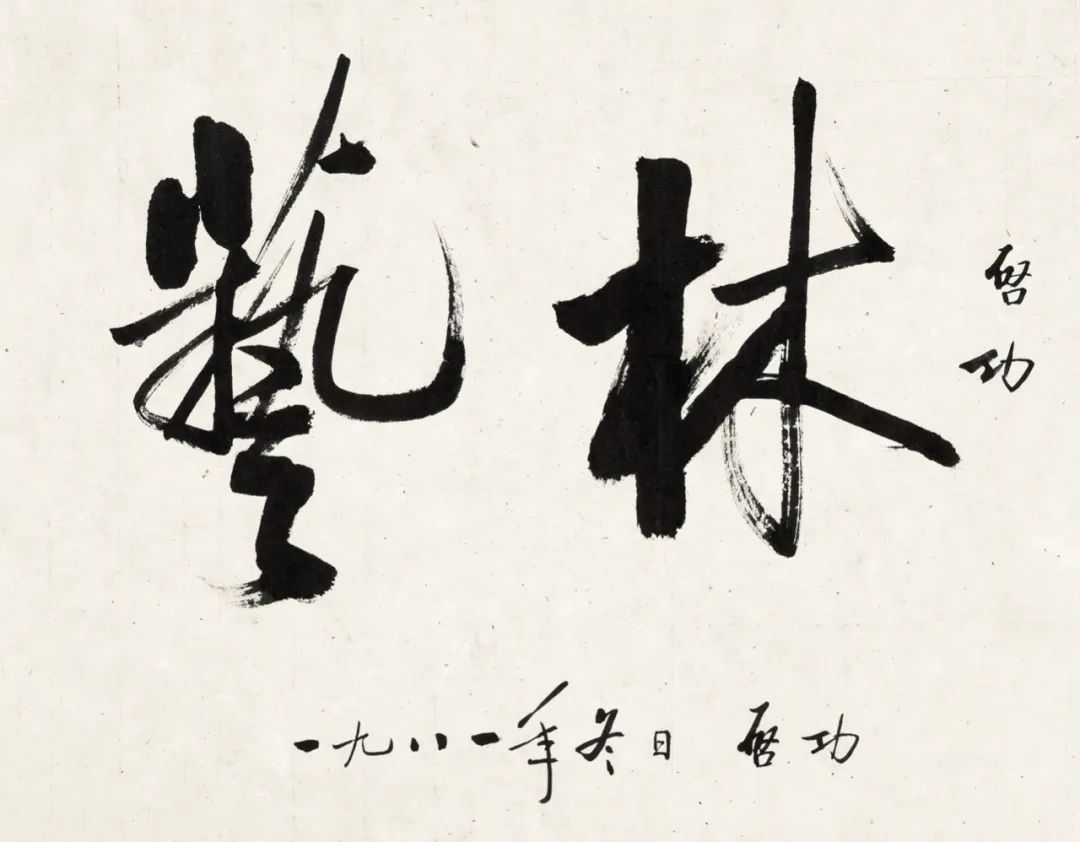 藝林
啓功
一九八一年冬日 啓功